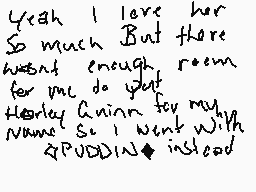 Yeah I love her
So much But there
wasnt enough room
for me do put
Harley Quinn for my
Name So I went With
☆PUDDIN◆ instead